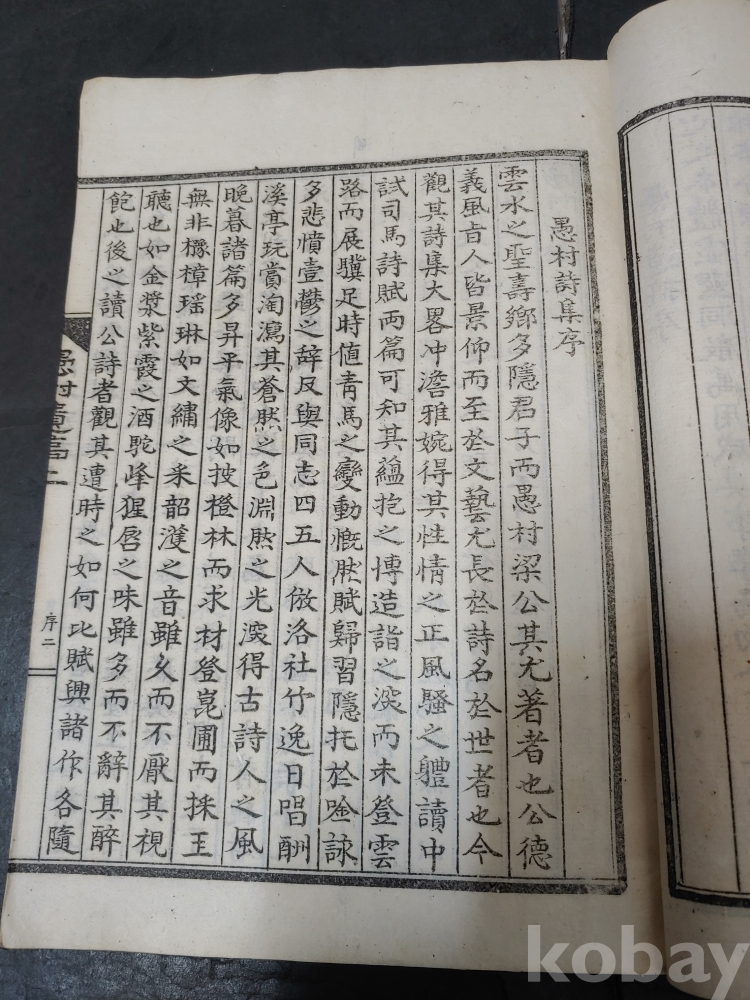 愚村詩集序
雲水之聖壽鄉多隱君子而愚村梁公其尤著者也公德
義風旨人皆景仰而至於文藝尤長於詩名於世者也今
觀其詩集大畧冲澹雅婉得其性情之正風騷之軆讀中
試司馬詩賦两篇可知其蘊抱之博造詣之深而未登雲
路而展驥足時値青馬之變動慨然賦歸習隱托於唫詠
多悲憤壹欝之辭及與同志四五人倣洛社竹逸日唱酬
溪亭玩賞淘瀉其蒼然之色淵然之光深得古詩人之風
晩暮諸篇多昇平氣像如披橙林而求材登崑圃而採玉
無非櫾樟瑶琳如文繡之釆韶濩之音雖久而不厭其視
聽也如金漿紫霞之酒駝峰猩唇之味雖多而不辭其醉
飽也後之讀公詩者觀其遭時之如何比賦興諸作各隨
愚村遺稿二
序二
kobay